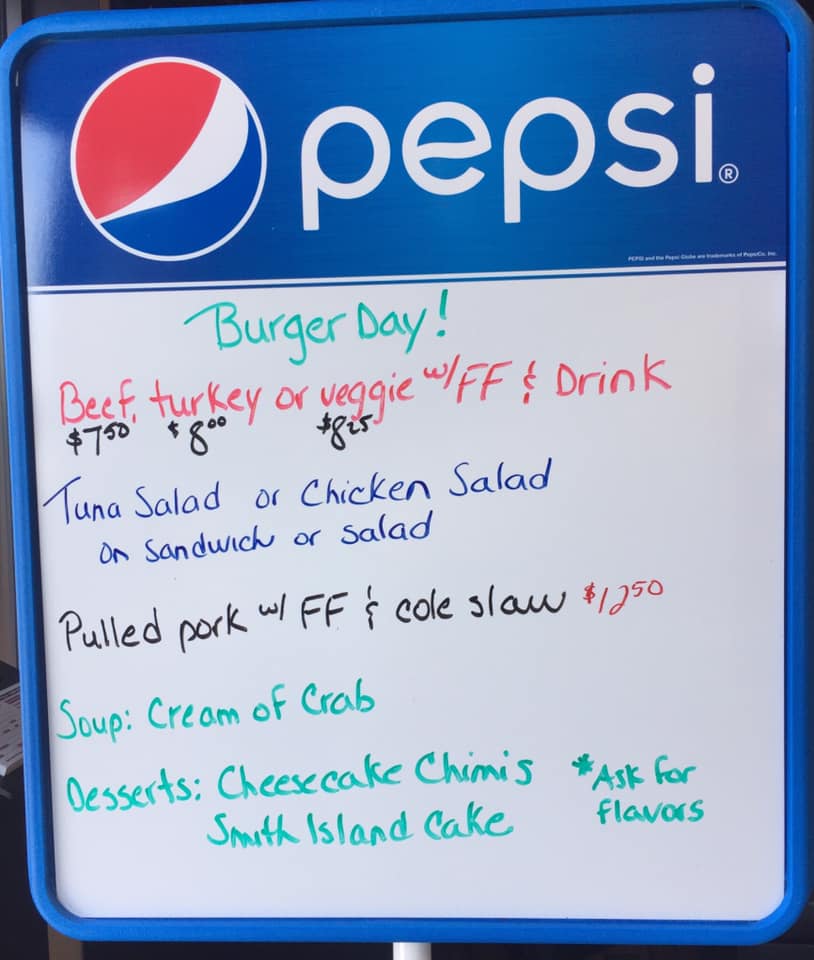 pepsi®
PEPSI and the Pepsi Globe are trademarks of PepsiCo, Inc.
Burger Day!
Beef, turkey or veggie w/FF & Drink
$7.50 $8.00 $8.25
Tuna Salad or Chicken Salad
on Sandwich or Salad
Pulled pork w/ FF & cole slaw $12.50
Soup: Cream of Crab
Desserts: Cheesecake Chimi's *Ask for
Smith Island Cake flavors